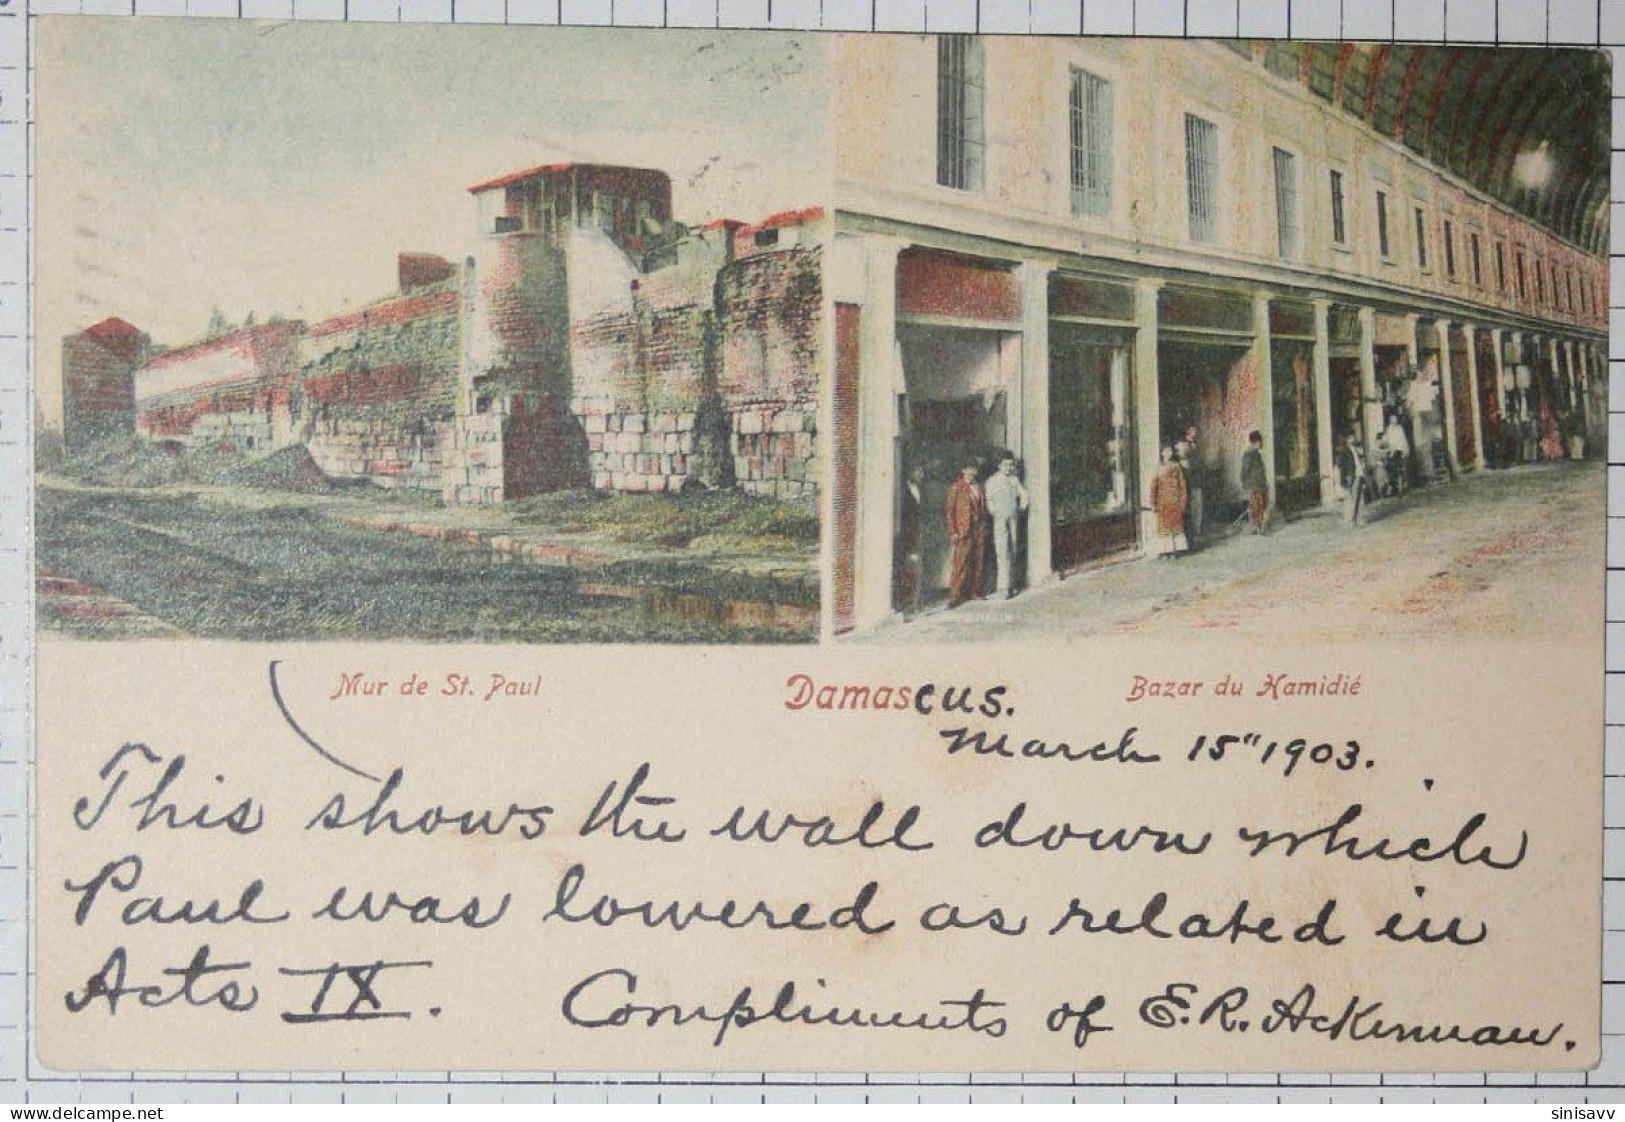 Mur de St. Paul
Damascus.
Bazar du Hamidié
March 15" 1903.
This shows the wall down which
Paul was lowered as related in
Acts IX. Compliments of E. R. Ackerman.
www.delcampe.net
sinisavv